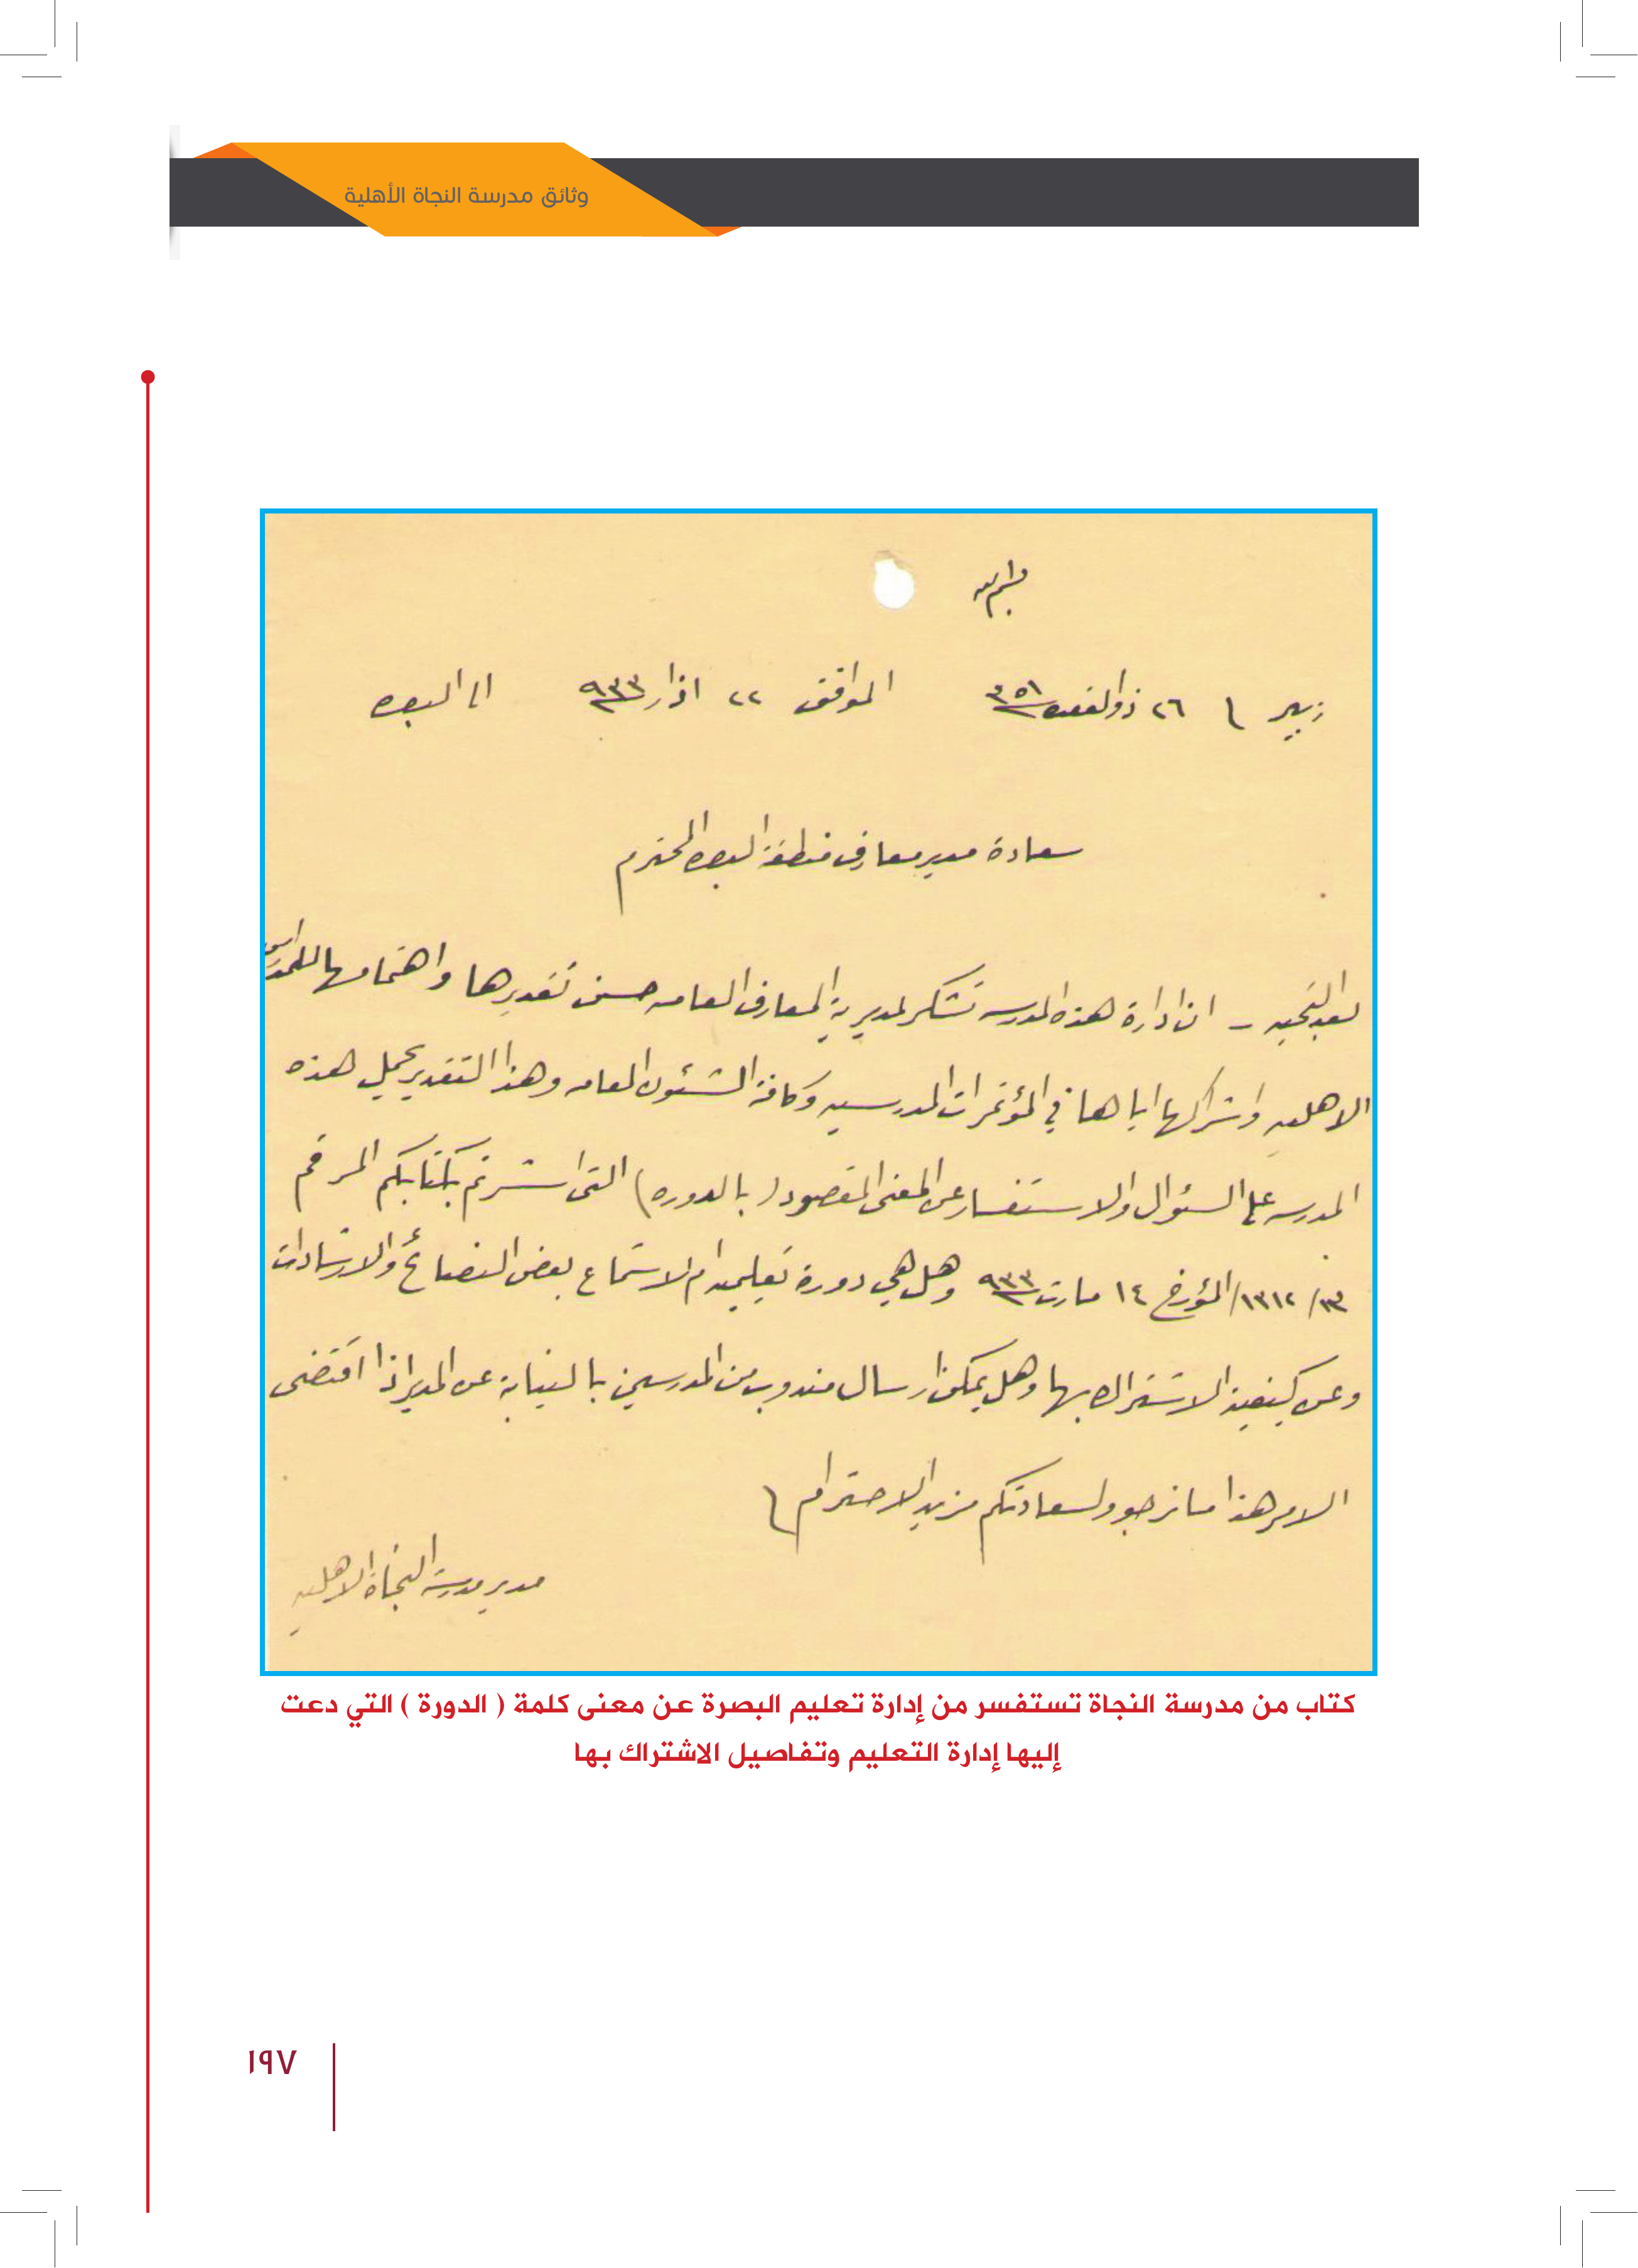 وثائق مدرسة النجاة الأهلية
بسم الله
زبير / ٢٦ ذو القعده ٣٥١ الموافق ٢٢ اذار ٩٣٣ الى البصره
سعادة مدير معارف منطقة البصره المحترم
بعد التحيه – ان ادارة هذه المدرسه تشكر لمديرية المعارف العامه حسن تقديرها واهتمامها للمدارس
الاهليه واشراكها اياها في المؤتمرات المدرسيه وكافة الشئون العامه وهذا التقدير يحمل هذه
المدرسه على السئوال والاستفسار عن المعنى المقصود (بالدوره) التى اشرتم بكتابكم المرقم
١٣/١٣١٢/ المؤرخ ١٤ مارت ٩٣٣ وهل هي دورة تعليميه ام لاستماع بعض النصائح والارشادات
وعن كيفية الاشتراك بها وهل يمكن ارسال مندوب من المدرسين بالنيابة عن المدير اذا اقتضى
الامر هذا ما نرجو ولسعادتكم مزيد الاحترام /
مدير مدرسة النجاة الاهليه
كتاب من مدرسة النجاة تستفسر من إدارة تعليم البصرة عن معنى كلمة ( الدورة ) التي دعت
إليها إدارة التعليم وتفاصيل الاشتراك بها
١٩٧